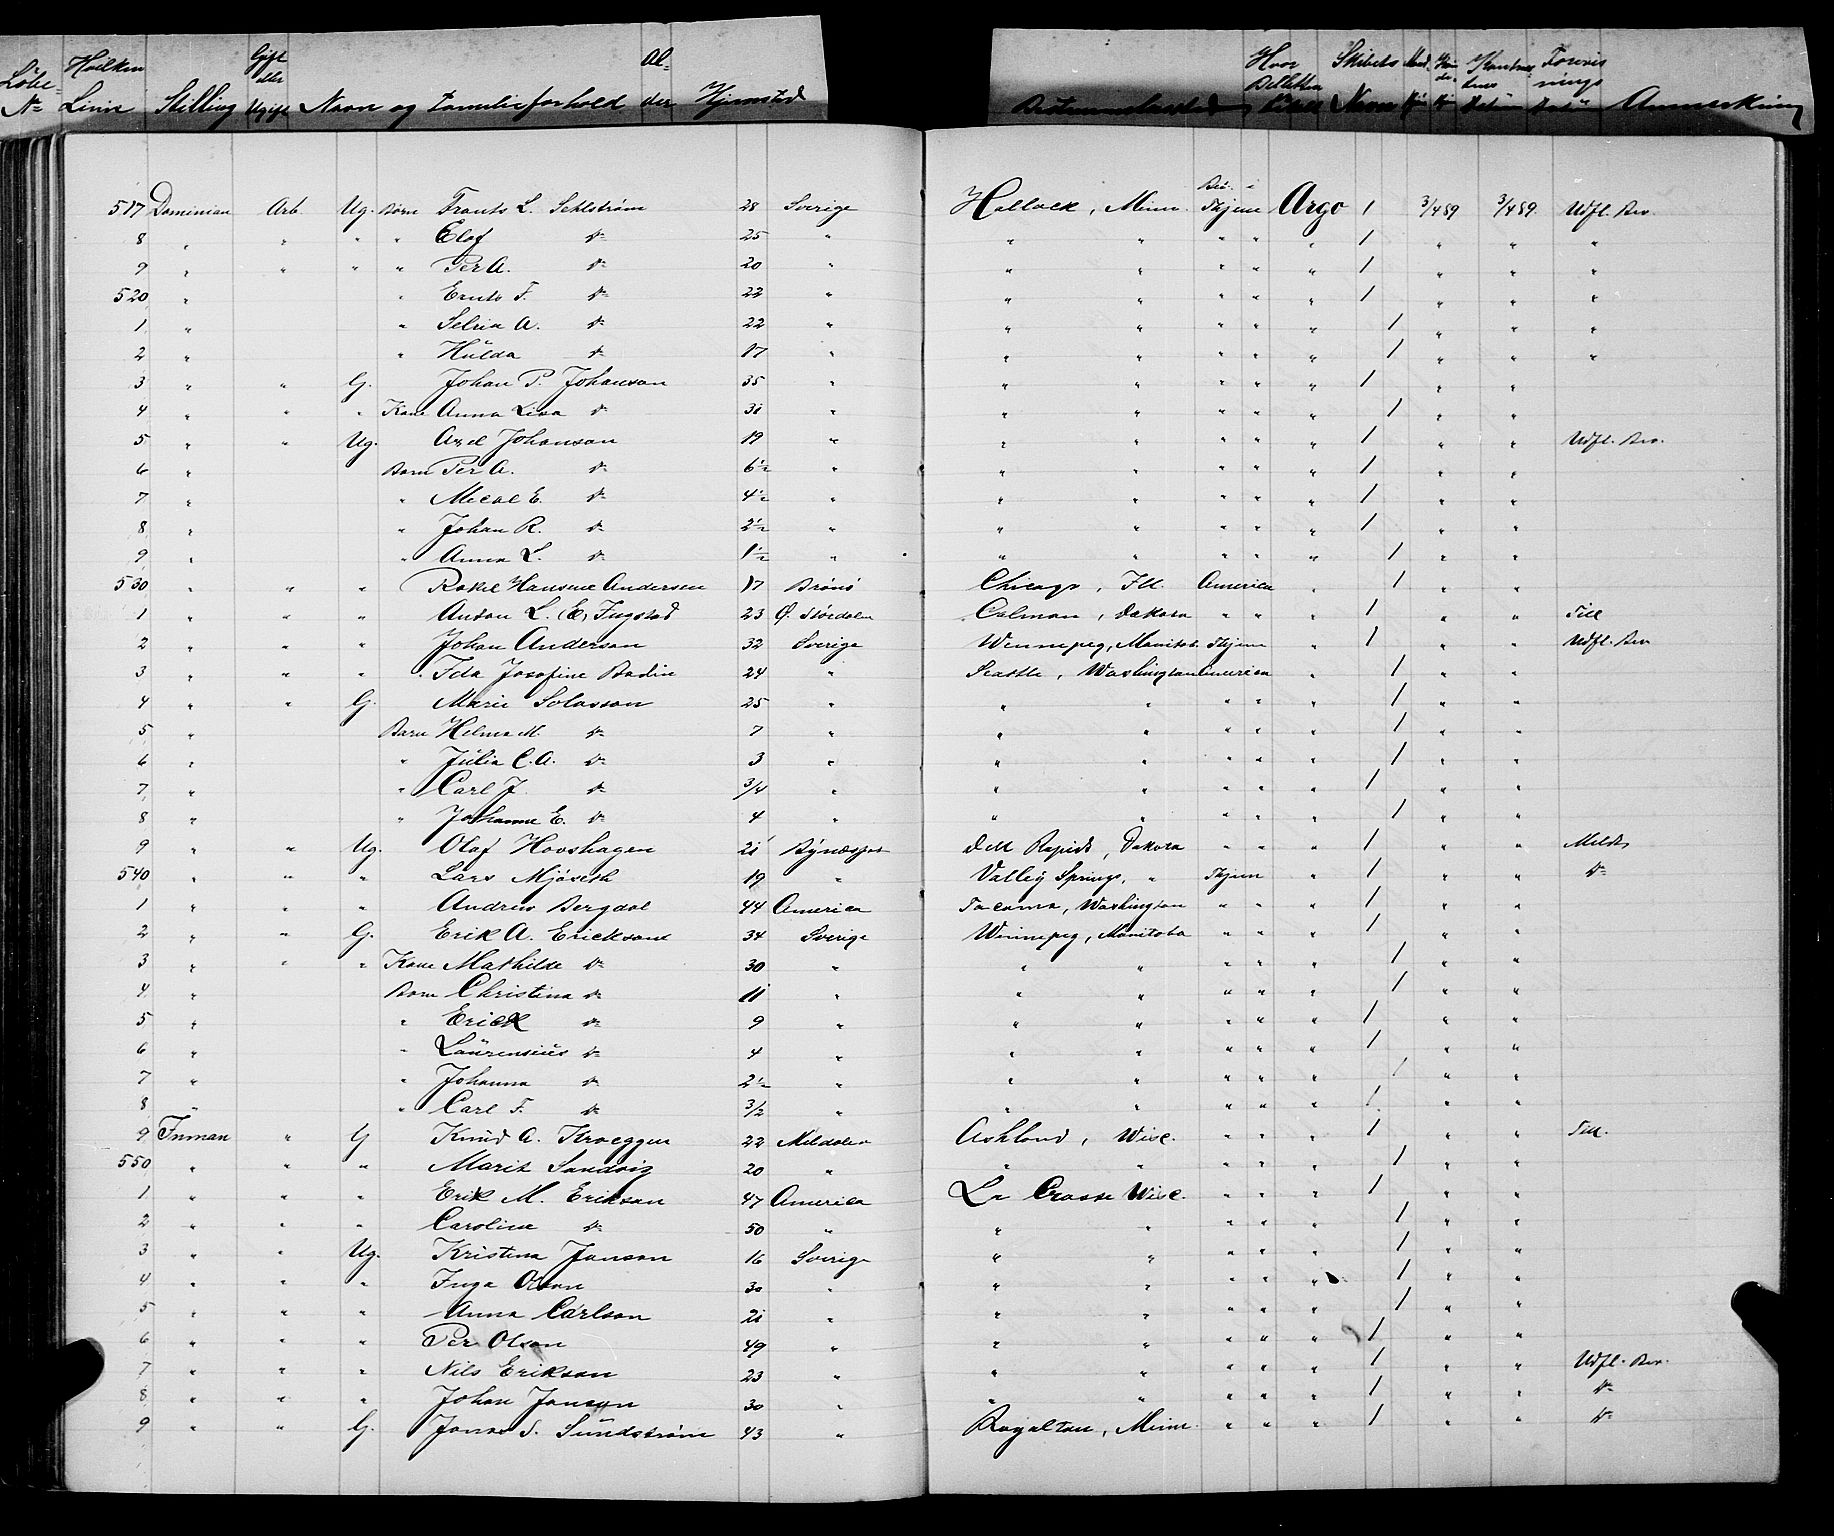 Løbe- No Hvilken Linie Stilling Gift eller Ugift Navn og Familieforhold Al- der Hjemsted Bestemmelsessted Hvor Billetten Skibets Navn Anmerkning
517 Dominian Arb Ug. Børn Frants L. Sehlstrøm 28 Sverige Hallock, Minn. Bev. i Thjem Argo 1 3/4 89 3/4 89. Udfl. Bev.
8 " " " " Elof do 25 " " " " " " 1 " " "
9 " " " " Per A. do 20 " " " " " " 1 " " "
520 " " Ernts F. do 22 " " " " " " 1 " " "
1 " " Selvia A. do 22 " " " " " " 1 " " "
2 " " Hulda do 17 " " " " " " 1 " " "
3 " " G. Johan P. Johanson 35 " " " " " " 1 " "
4 " " " Kone Anna Lisa do 31 " " " " " " 1 " "
5 " " Ug. Axel Johanson 19 " " " " " 1 " " Udfl. Bev.
6 " Barn Per A. do 6 1/2 " " " " " " 1 " "
7 " " Micol E. do 4 1/2 " " " " " " 1 " "
8 " " Johan R. do 2 1/2 " " " " " " 1 " "
9 " " Anna L. do 1 1/2 " " " " " " 1 " "
530 " " " Rakel Hansine Andersen 17 Brønø Chicago, Ill. America " 1 " "
1 " " " Anton L. E. Fugstad 23 Ø. Størdalen Colman, Dakota " " " 1 " " Till
2 " " " Johan Anderson 32 Sverige Winnepeg, Manitob. Thjem " 1 " " Udfl. Bev
3 " " " Ida Josefine Bodin 24 " Seattle, Washington America " 1 " "
4 " " G. Marie Solasson 25 " " " " " " 1 " "
5 " Barn Helma M. do 7 " " " " " " 1 " "
6 " " Julia C. A. do 3 " " " " " " 1 " "
7 " " Carl J. do 3/4 " " " " " " 1 " "
8 " " Johanne E. do 4 " " " " " " 1 " "
9 " " Ug. Olaf Hovshagen 21 Bynæsset Dell Rapids, Dakota " " " 1 " " Meldt
540 " " " Lars Mjøseth 19 " Valley Springs, " Thjem " 1 " " do
1 " " " Andrew Bergdal 44 America Tacoma, Washington " " " 1 " "
2 " " G. Erik A. Erickson 34 Sverige Winnepeg, Manitoba " " " 1 " "
3 " " " Kone Mathilde do 30 " " " " " " 1 " "
4 " Born Christina do 11 " " " " " " 1 " "
5 " " Erick do 9 " " " " " " 1 " "
6 " " Laurensius do 4 " " " " " " 1 " "
7 " " Johanna do 2 1/2 " " " " " " 1 " "
8 " " Carl F. do 3/2 " " " " " " 1 " "
9 Inman " G Knud A. Kroeggen 22 Meldalen Ashland, Wisc. " " " 1 " " Till.
550 " " " Marit Sandvig 20 " " " " " " 1 " "
1 " " " Erik M. Erikson 47 America La Crosse Wisc. " " " 1 " "
2 " " " Caroline do 50 " " " " " " 1 " "
3 " " Ug. Kristina Janson 16 Sverige " " " " " 1 " "
4 " " " Inga Olson 30 " " " " " " 1 " "
5 " " " Anna Carlson 21 " " " " " " 1 " "
6 " " " Per Olson 49 " " " " " " 1 " "
7 " " " Nils Erikson 23 " " " " " " 1 " " Udfl. Bev.
8 " " " Johan Janson 30 " " " " " " 1 " " do
9 " " G. Jonas S. Sundstrøm 43 " Royalton, Minn. " " " 1 " " do